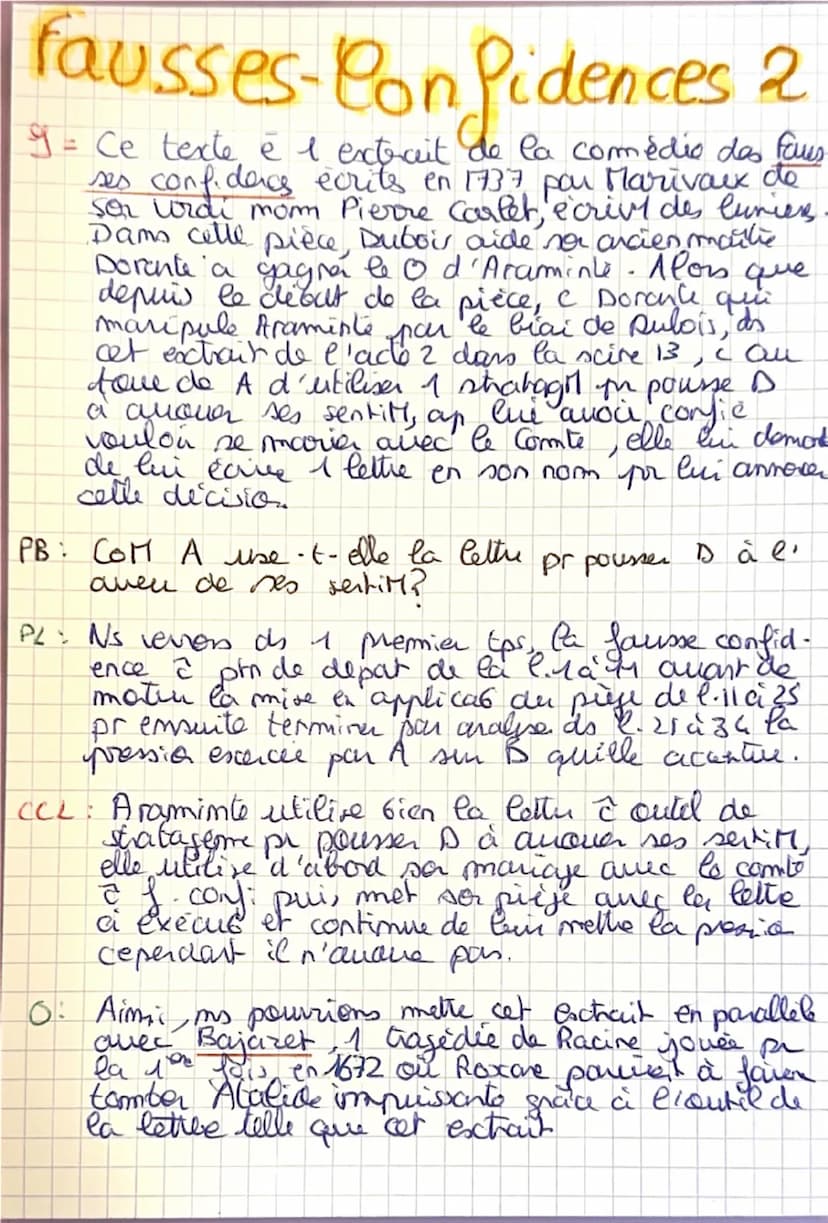 Fausses-Confidences 2
g = Ce texte ē 1 extrait de la comédie des faus
ses confidences écrits en 1737 par Marivaux de
son vrai nom Pierre Carlet, écrivM des lumières.
Dans cette pièce, Dubois aide son ancien maître
Dorante a gagner le d'Araminte. Alors que
depuis le début de la pièce, c Dorante qui
manipule Araminte par le biai de Dubois, ds
cet extrait de l'acte 2 dans la scène 13, c au
tour de A d'utiliser 1 pr pousse D
à avouer ses sentiM, ap lui avoir confié
vouloir se marier avec le Comte, elle lui demande
de lui écrire 1 lettre en son nom pr lui annoncer
cette décision.
PB: CoM A use-t-elle la lettre pr pousser D à l'
aveu de ses sentiM?
PL: Ns verrons ds 1 premier tps, la fausse confid-
ence c̄ ptn de départ de la l.1 à 11 avant de
motrer la mise en applica6 du piège de l.11 à 25
pr ensuite terminer par analyse ds l.25 à 34 la
pression exercée par A sur D qu'elle acentue.
CCL: Araminte utilise bien la lettre c̄ outil de
stratagème pr pousser D à avouer ses sentiM,
elle utilise d'abord son mariage avec le comte
c̄ f. conf. puis, met son piège avec la lettre
à et continue de lui mettre la pression
cependant il n'avoue pas.
O: Ainsi, ns pourrions mettre cet extrait en parallèle
avec Bajazet, 1 tragédie de Racine jouée pr
la 1ère fois en 1672 où Roxane parvient à faire
tomber Atalide impuissante grâce à l'outil de
la lettre telle que cet extrait